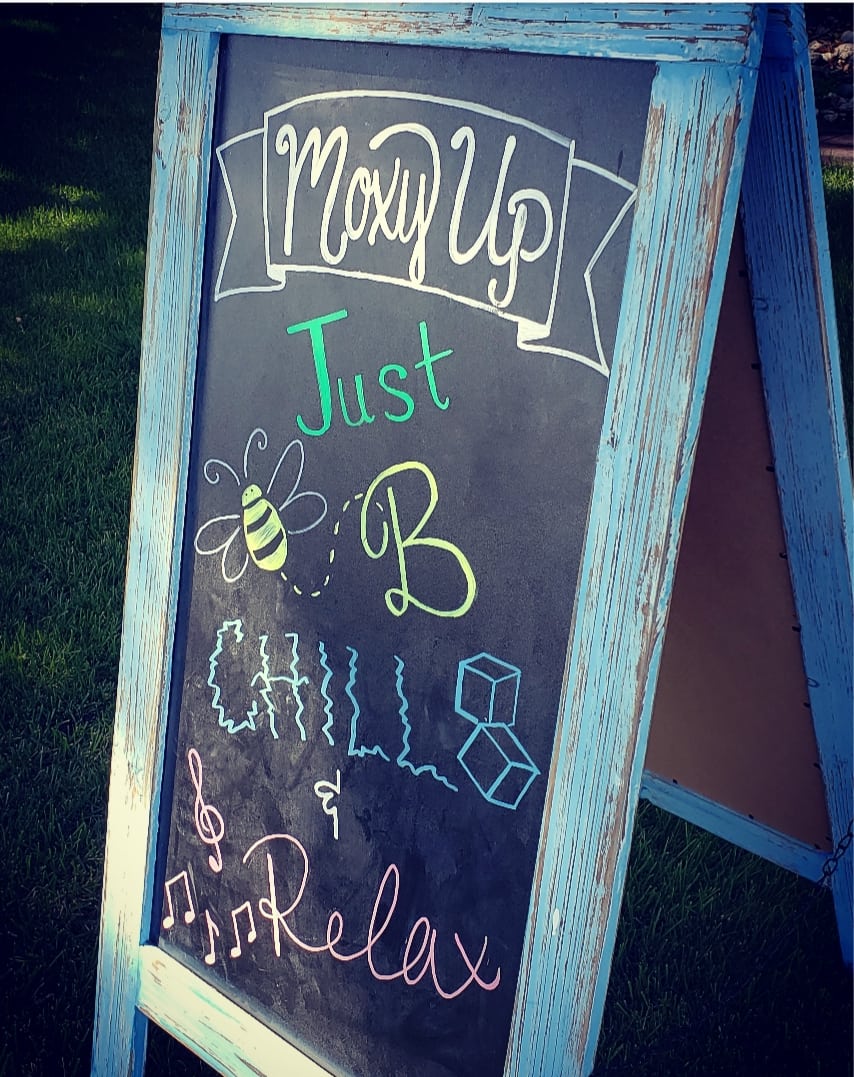 Moxy Up
Just
B
CHILL
&
Relax